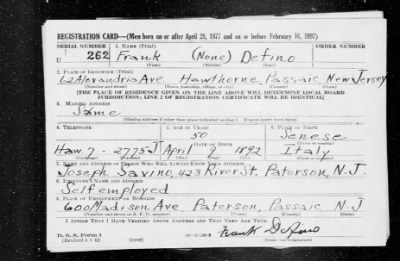 REGISTRATION CARD—(Men born on or after April 28, 1877 and on or before February 16, 1897)
SERIAL NUMBER 1. NAME (Print)
U 262 Frank (None) Defino
2. PLACE OF RESIDENCE (Print)
62 Alexandria Ave Hawthorne, Passaic New Jersey
(Number and street) (Town, township, village, or city) (County) (State)
[THE PLACE OF RESIDENCE GIVEN ON THE LINE ABOVE WILL DETERMINE LOCAL BOARD
JURISDICTION; LINE 2 OF REGISTRATION CERTIFICATE WILL BE IDENTICAL]
3. MAILING ADDRESS
Same
[Mailing address if other than place indicated on line 2. If same insert word same]
4. TELEPHONE 5. AGE IN YEARS 6. PLACE OF BIRTH
50 Senese
DATE OF BIRTH
Haw. 7-2775J April 9 1892 Italy
7. NAME AND ADDRESS OF PERSON WHO WILL ALWAYS KNOW YOUR ADDRESS
Joseph Savino, 423 River St. Paterson, N.J.
8. EMPLOYER'S NAME AND ADDRESS
Self employed
9. PLACE OF EMPLOYMENT OR BUSINESS
600 Madison Ave. Paterson, Passaic N.J
(Number and street or R. F. D. number) (Town) (County) (State)
I AFFIRM THAT I HAVE VERIFIED ABOVE ANSWERS AND THAT THEY ARE TRUE.
D. S. S. Form 1
Frank Defino